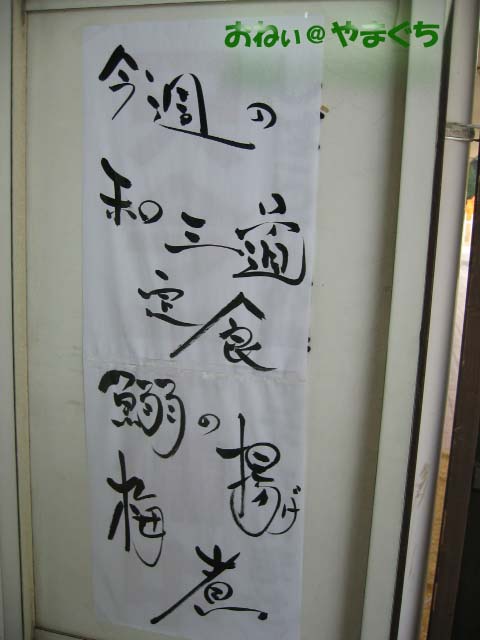 おねい@やまぐち
今週の
和三道
定食
鰯の揚げ
梅煮